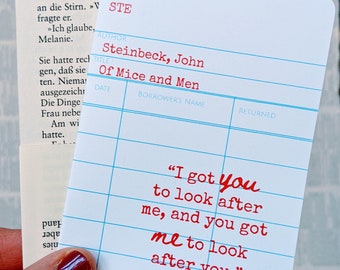 an die Stirn. »Was
fragte er.
»Ich glaube,
Melanie.
Sie hatte rech
daß sie
ausgezeichne
Die Dinge
Frau nebe
Am
wi
so
damit
aber
STE
AUTHOR
Steinbeck, John
TITLE
Of Mice and Men
DATE
BORROWER'S NAME
RETURNED
“I got you
to look after
me, and you got
me to look
after you.”